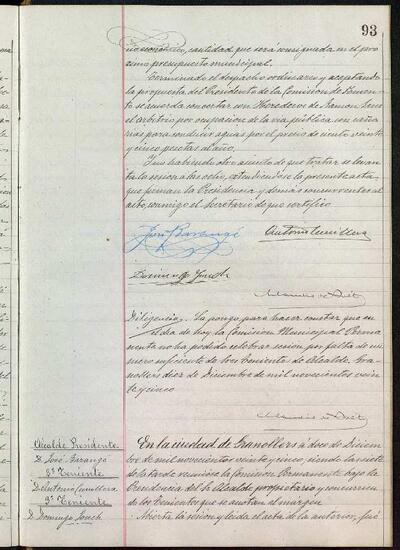 93
no económico, cantidad que será consignada en el pró
ximo presupuesto municipal.
Terminado el despacho ordinario y aceptando
la propuesta del Presidente de la Comisión de Fomen
to se acuerda concertar con Herederos de Ramon
el arbitrio por ocupación de la vía pública con cañe
rias para conducir aguas por el precio de ciento veinte
y cinco pesetas al año.
Y no habiendo otro asunto de que tratar se levan
ta la sesión a las ocho, extendiéndose la presente acta
que firman la Presidencia y demás concurrentes al
acto, conmigo el Secretario de que certifico
José Barangé
Antonio Cumellera
Domingo Junch
Diligencia. La pongo para hacer constar que en
el dia de hoy la Comisión Municipal Perma
nente no ha podido celebrar sesión por falta de nú
mero suficiente de los Teniente de Alcalde. Gra
nollers diez de Diciembre de mil novecientos vein
te y cinco
Alcalde Presidente
D. José Barangé
Teniente
D. Antonio Cumellera
Teniente
D. Domingo Junch
En la ciudad de Granollers a doce de Diciem
bre de mil novecientos veinte y cinco, siendo las siete
de la tarde reunióse la Comisión Permanente bajo la
Presidencia del Sr. Alcalde propietario y concurrencia
de los Tenientes que se anotan al margen
Abierta la sesión y leida el acta de la anterior, fué